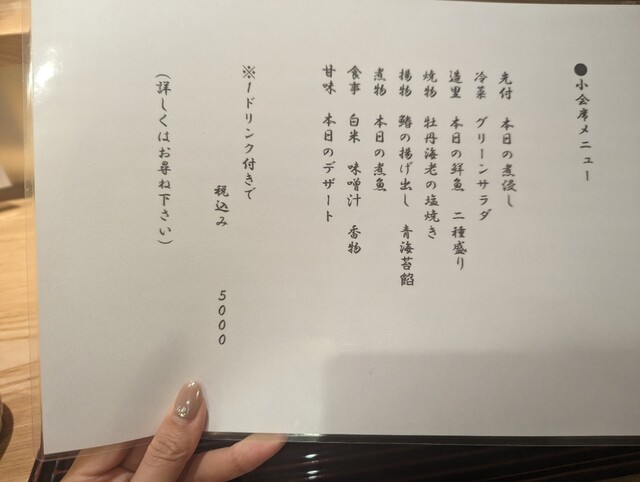 ●小会席メニュー
先付 本日の煮浸し
冷菜 グリーンサラダ
造里 本日の鮮魚 二種盛り
焼物 牡丹海老の塩焼き
揚物 鰆の揚げ出し 青海苔餡
煮物 本日の煮魚
食事 白米 味噌汁 香物
甘味 本日のデザート
※1ドリンク付きで
税込み 5000
(詳しくはお尋ね下さい)